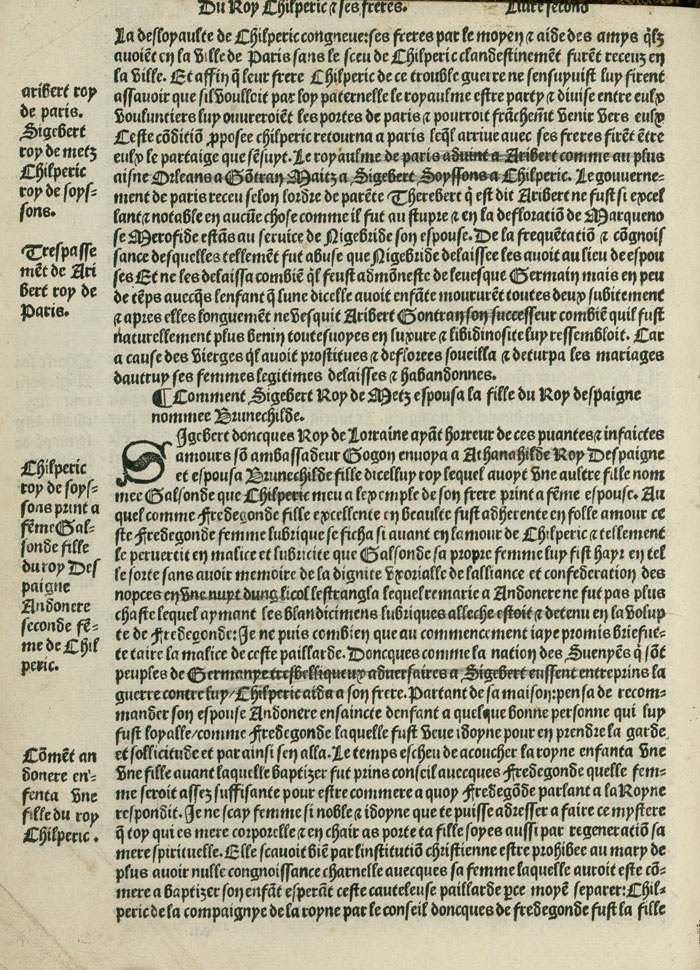 Du Roy Chilperic ⁊ ses freres. Liure second
La desloyaulte de Chilperic congneue: ses freres par le moyen ⁊ aide des amys q̃lz
auoiẽt en la ville de Paris sans le sceu de Chilperic clandestinemẽt furẽt receuz en
la ville. Et affin q̃ leur frere Chilperic de ce trouble guerre ne sensuyuist luy firent
assauoir que sil voulloit par loy paternelle le royaulme estre party ⁊ diuise entre eulx
vouluntiers luy ouureroiẽt les portes de paris ⁊ pourroit frãchemẽt venir vers eulx
Ceste cõditiõ pposee chilperic retourna a paris leq̃l arriue auec ses freres firẽt ẽtre
eulx le partaige que sẽsuyt. Le royaulme de paris aduint a Aribert comme au plus
aisne Orleans a Gõtran Maitz a Sigebert Soyssons a Chilperic. Le gouuerne-
ment de paris receu selon lordre de parẽte Therebert q̃ est dit Aribert ne fust si excel
lant ⁊ notable en aucũe chose comme il fut au stupre ⁊ en la defloratiõ de Marqueno
se Merofide estãs au seruice de Nigebride son espouse. De la frequẽtatiõ ⁊ cõgnois
sance desquelles tellemẽt fut abuse que Nigebride delaissee les auoit au lieu de espou
ses Et ne les delaissa combiẽ q̃l feust admõneste de leuesque Germain mais en peu
de tẽps auecq̃s lenfant q̃ lune dicelle auoit enfãte moururẽt toutes deux subitement
⁊ apres elles longuemẽt ne vesquit Aribert Gontran son successeur combiẽ quil fust
naturellement plus benin toutesuoyes en luxure ⁊ libidinosite luy ressembloit. Car
a cause des vierges q̃l auoit prostitues ⁊ deflorees soueilla ⁊ deturpa les mariages
dautruy ses femmes legitimes delaisses ⁊ habandonnes.
¶ Comment Sigebert Roy de Metz espousa la fille du Roy despaigne
nommee Brunechilde.
SIgebert doncques Roy de Lorraine ayãt horreur de ces puantes ⁊ infaictes
amours sõ ambassadeur Gogon enuoya a Athanahilde Roy Despaigne
et espousa Brunechilde fille dicelluy roy lequel auoyt vne aultre fille nom
mee Galsonde que Chilperic meu a lexemple de son frere print a fẽme espouse. Au
quel comme Fredegonde fille excellente en beaulte fust adherente en folle amour ce
ste Fredegonde femme lubrique se ficha si auant en lamour de Chilperic ⁊ tellement
le peruertit en malice et lubricite que Galsonde sa propre femme luy fist hayr en tel
le sorte sans auoir memoire de la dignite vxorialle de lalliance et confederation des
nopces en vne nuyt dung licol lestrangla lequel remarie a Andonere ne fut pas plus
chaste lequel aymant les blandicimens lubriques alleche estoit ⁊ detenu en la volup
te de Fredegonde: Je ne puis combien que au commencement iaye promis briefue-
te taire la malice de ceste paillarde. Doncques comme la nation des Suenyẽs q̃ sõt
peuples de Germanye tresbelliqueux aduersaires a Sigebert eussent entreprins la
guerre contre luy/Chilperic aida a son frere. Partant de sa maison: pensa de recom-
mander son espouse Andonere ensaincte denfant a quelque bonne personne qui luy
fust loyalle/comme Fredegonde laquelle fust veue idoyne pour en prendre la garde
et sollicitude et par ainsi sen alla. Le temps escheu de acoucher la royne enfanta vne
vne fille auant laquelle baptizer fut prins conseil auecques Fredegonde quelle fem-
me seroit assez suffisante pour estre commere a quoy Fredegõde parlant a la Royne
respondit. Je ne scay femme si noble ⁊ idoyne que te puisse adresser a faire ce mystere
q̃ toy qui es mere corporelle ⁊ en chair as porte ta fille soyes aussi par regeneratiõ sa
mere spirituelle. Elle scauoit biẽ par linstitutiõ christienne estre prohibee au mary de
plus auoir nulle congnoissance charnelle auecques sa femme laquelle auroit este cõ-
mere a baptizer son enfãt esperãt ceste cauteleuse paillarde pce moyẽ separer: Chil-
peric de la compaignye de la royne par le conseil doncques de fredegonde fust la fille
aribert roy
de paris.
Sigebert
roy de metz
Chilperic
roy de soys-
sons.
Trespasse
mẽt de Ari
bert roy de
Paris.
Chilperic
roy de soys-
sons print a
fẽme Gal-
sonde fille
du roy Des
paigne
Andonere
seconde fẽ-
me de Chil
peric.
Cõmẽt an
donere en-
fenta vne
fille du roy
Chilperic.